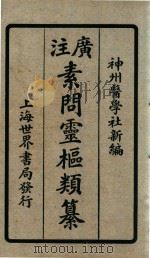 神州醫學社新編
廣注
素問靈樞類纂
上海世界書局發行
mtoou.info